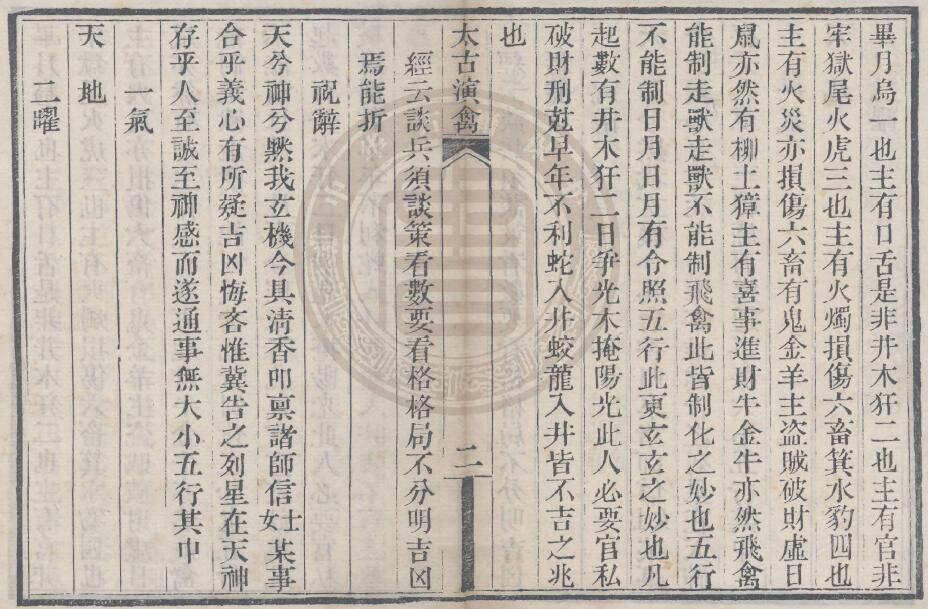 畢月烏一也主有口舌是非井木犴二也主有官非
牢獄尾火虎三也主有火燭損傷六畜箕水豹四也
主有火災亦損傷六畜有鬼金羊主盗賊破財虛日
鼠亦然有柳土獐主有喜事進財牛金牛亦然飛禽
能制走獸走獸不能制飛禽此皆制化之妙也五行
不能制日月日月有令照五行此更玄玄之妙也凡
起數有井木犴二日爭光木掩陽光此人必要官私
破財刑尅早年不利蛇入井蛟龍入井皆不吉之兆
也
太古演禽
二
經云談兵須談策看數要看格格局不分明吉凶
焉能折
祝辭
天兮神兮黙我玄機今具清香叩禀諸師信士女某事
合乎義心有所疑吉凶悔吝惟冀告之列星在天神
存乎人至誠至神感而遂通事無大小五行其中
一氣
天 地
二曜